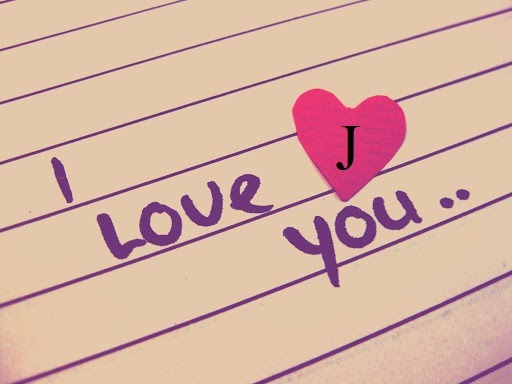 I
LOVE
J
you..